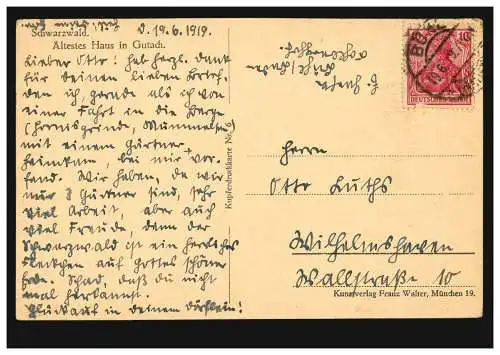 Schwarzwald.
d. 19.6.1919.
Ältestes Haus in Gutach.
Lieber Otto! Hab herzl. Dank
für deinen lieben Brief,
den ich gerade als ich von
einer Fahrt in die Berge
(Hornisgrinde, Mummelsee)
mit einem Gärtner
heimkam, bei mir vor-
fand. Wir haben, da wir
nur 8 Gärtner sind, sehr
viel Arbeit, aber auch
viel Freude, denn der
Schwarzwald ist ein herrliches
Fleckchen auf Gottes schöner
Erde. Schad, daß du nicht
mal herkannst.
Glückauf in deinem Dörflein!
Kupferdruckkarte Nr. 6
10
DEUTSCHES REICH
Herrn
Otto Luths
Wilhelmshaven
Wallstraße 10
Kunstverlag Franz Walter, München 19.